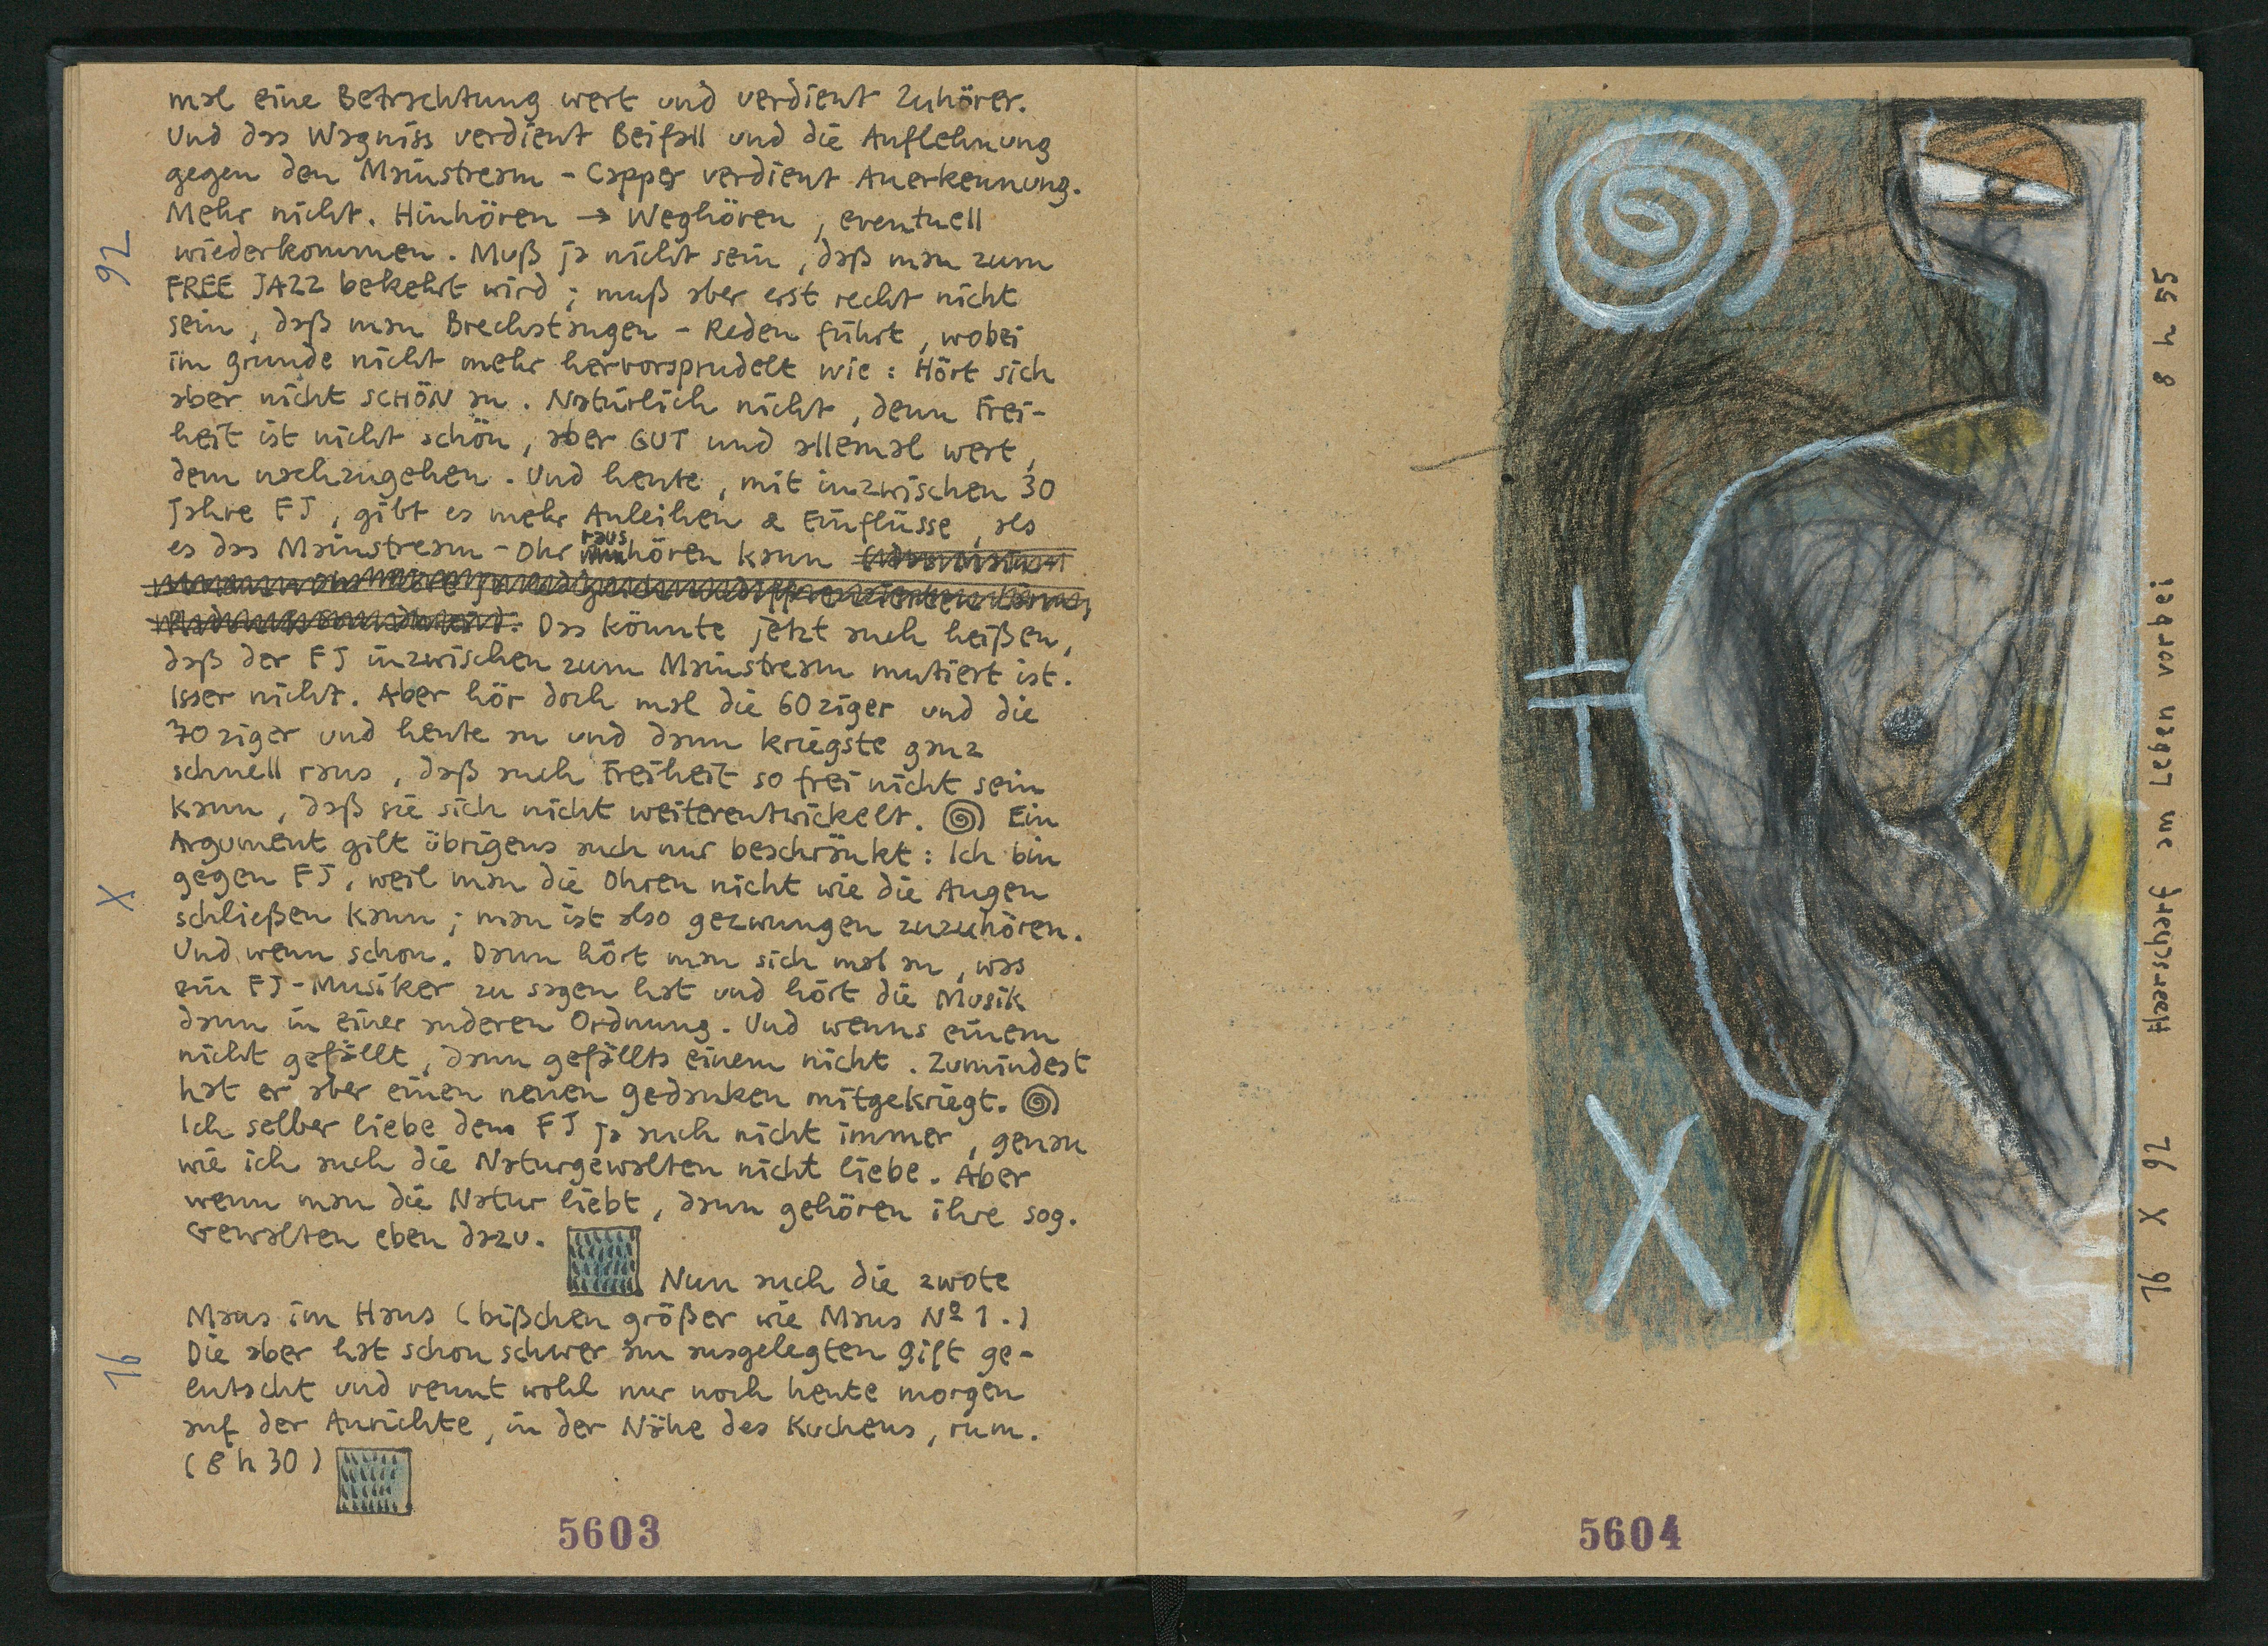 mal eine Betrachtung wert und verdient Zuhörer.
Und das Wagniss verdient Beifall und die Auflehnung
gegen den Mainstream - Capper verdient Anerkennung.
Mehr nicht. Hinhören → Weghören, eventuell
wiederkommen. Muß ja nicht sein, daß man zum
FREE JAZZ bekehrt wird; muß aber erst recht nicht
sein, daß man Brechstangen - Reden führt, wobei
im grunde nicht mehr hervorsprudelt wie: Hört sich
aber nicht SCHÖN an. Natürlich nicht, denn Frei-
heit ist nicht schön, aber GUT und allemal wert,
dem nachzugehen. Und heute, mit inzwischen 30
Jahre FJ, gibt es mehr Anleihen & Einflüsse, als
es das Mainstream-Ohr raushören kann
Das könnte jetzt auch heißen,
daß der FJ inzwischen zum Mainstream mutiert ist.
Isser nicht. Aber hör doch mal die 60ziger und die
70ziger und heute an und dann kriegste ganz
schnell raus, daß auch Freiheit so frei nicht sein
kann, daß sie sich nicht weiterentwickelt. Ein
Argument gilt übrigens auch nur beschränkt: Ich bin
gegen FJ, weil man die Ohren nicht wie die Augen
schließen kann; man ist also gezwungen zuzuhören.
Und wenn schon. Dann hört man sich mal an, was
ein FJ-Musiker zu sagen hat und hört die Musik
dann in einer anderen Ordnung. Und wenns einem
nicht gefällt, dann gefällts einem nicht. Zumindest
hat er aber einen neuen gedanken mitgekriegt.
Ich selber liebe den FJ ja auch nicht immer, genau
wie ich auch die Naturgewalten nicht liebe. Aber
wenn man die Natur liebt, dann gehören ihre sog.
Gewalten eben dazu.
Nun auch die zwote
Maus im Haus (bißchen größer wie Maus Nº 1.)
Die aber hat schon schwer am ausgelegten gift ge-
entscht und rennt wohl nur noch heute morgen
auf der Anrichte, in der Nähe des Kuchens, rum.
(8 h 30)
16 X 92
5603
16 X 92 Haarscharf am Leben vorbei 8 h 55
5604